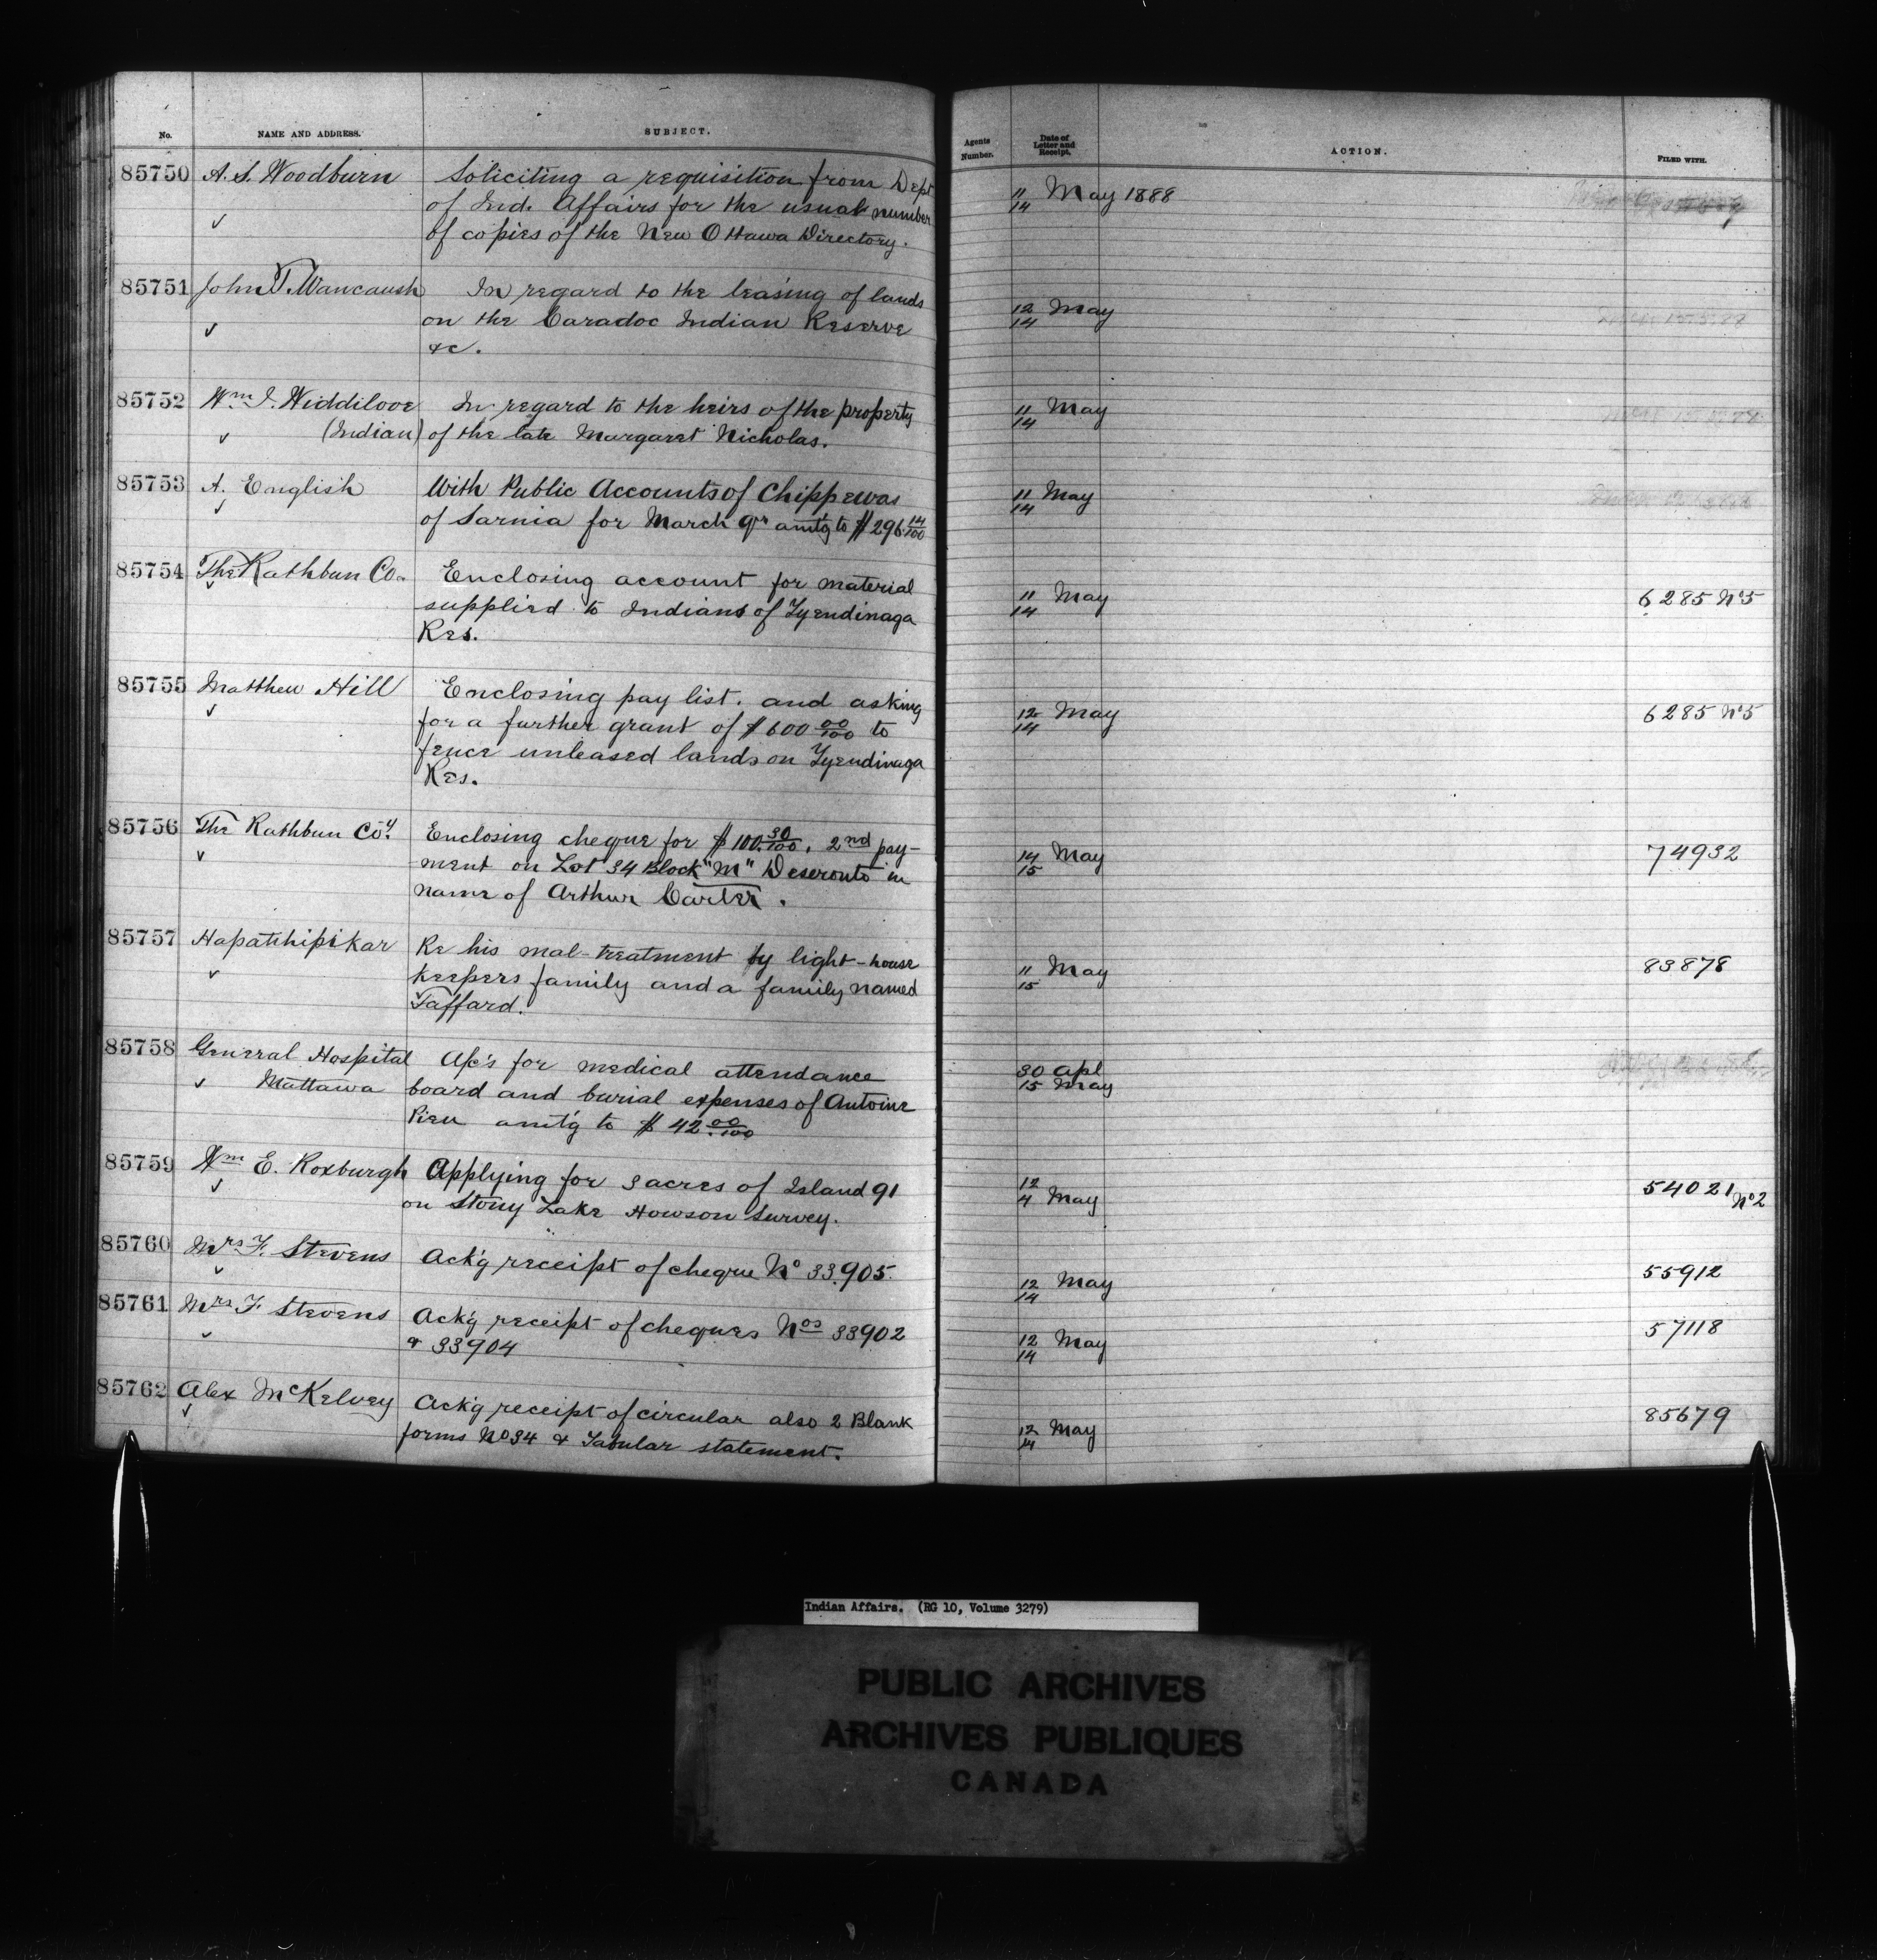 No. NAME AND ADDRESS. SUBJECT. Agents Number. Date of Letter and Receipt. ACTION. FILED WITH.
85750 A. S. Woodburn Soliciting a requisition from Dept 11/14 May 1888
✓ of Ind. Affairs for the usual number
of copies of the New Ottawa Directory.
85751 John T. Wawcaush In regard to the leasing of lands 12/14 May
✓ on the Caradoc Indian Reserve
&c.
85752 Wm J. Widdilove In regard to the heirs of the property 11/14 May
✓ (Indian) of the late Margaret Nicholas.
85753 A. English With Public Accounts of Chippewas 11/14 May
✓ of Sarnia for March qr amt'g to $296.14/100
85754 The Rathbun Co. Enclosing account for material 11/14 May 6285 No5
✓ supplied to Indians of Tyendinaga
Res.
85755 Matthew Hill Enclosing pay list. and asking 12/14 May 6285 No5
✓ for a further grant of $600 00/100 to
fence unleased lands on Tyendinaga
Res.
85756 The Rathbun Coy. Enclosing cheque for $100.30/100, 2nd pay- 14/15 May 74932
✓ ment on Lot 34 Block "M" Deseronto in
name of Arthur Carter.
85757 Hapatihipikar Re his mal-treatment by light-house 11/15 May 83878
✓ keepers family and a family named
Taffard.
85758 General Hospital A/c's for medical attendance 30 Apl
✓ Mattawa board and burial expenses of Antoine 15 May
Pieu amt'g to $42.00/100
85759 Wm E. Roxburgh Applying for 3 acres of Island 91 12/4 May 54021 No2
✓ on Stony Lake Howson Survey.
85760 Mrs F. Stevens Ack'g receipt of cheque No 33905. 12/14 May 55912
✓
85761 Mrs F. Stevens Ack'g receipt of cheques Nos 33902 12/14 May 57118
✓ & 33904
85762 Alex McKelvey Ack'g receipt of circular also 2 Blank 12/14 May 85679
✓ forms No 34 & Tabular statement.
Indian Affairs. (RG 10, Volume 3279)
PUBLIC ARCHIVES
ARCHIVES PUBLIQUES
CANADA